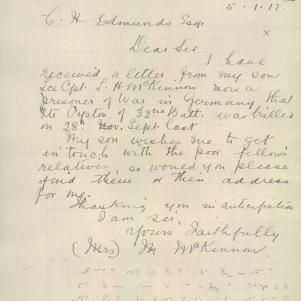 5.1.17
C. H. Edmunds Esq.
x
Dear Sir
I have
received a letter from my son
Lce Cpt. L. H. McKinnon now a
prisoner of War in Germany that
Pte Oyston of 32nd Batt. was killed
on 28th Nov. Sept. last
My son wishes me to get
in touch with the poor fellow's
relatives so would you please
find there or their address
for me.
Thanking you in anticipation
I am sir,
Yours Faithfully
(Mrs) M McKinnon